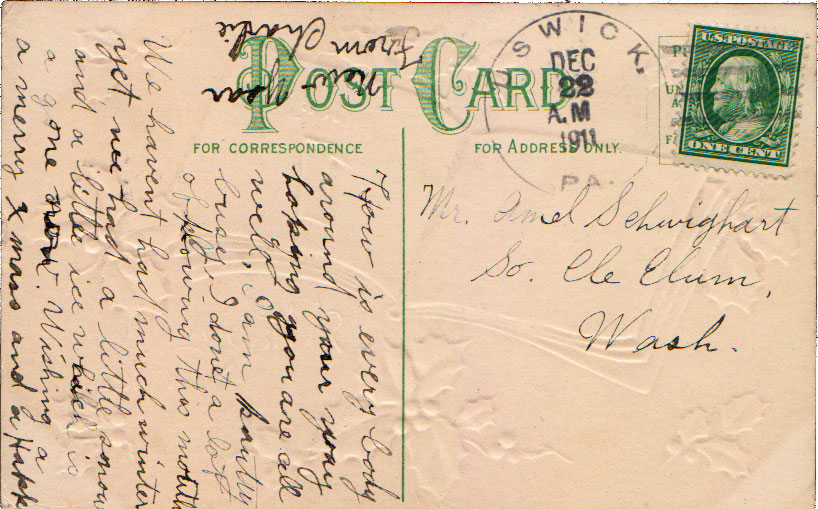 POST CARD
FOR CORRESPONDENCE
FOR ADDRESS ONLY.
SWICK,
DEC
22
A.M
1911
PA.
U.S. POSTAGE
ONE CENT
Mr. Amel Schwighart
So. Cle Elum,
Wash.
How is every body
around your way
hoping you are all
well, I am pretty
busy, I done a lot
of plowing this month
We havent had much winter
yet we had a little snow
and a little ice which is
a gone now. Wishing a
a merry X mass and a Happ
New Year
From Charlie